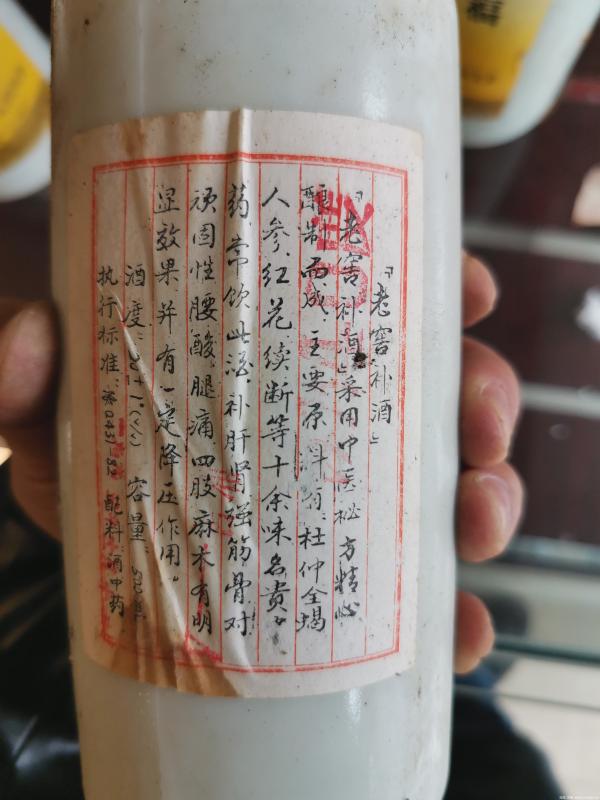 「老窖补酒」
「老窖补酒」采用中医秘方精心
酿制而成主要原料有:杜仲全蝎
人参.红花.续断等十余味名贵
药.常饮此酒.补肝肾强筋骨.对
顽固性腰酸.腿痛.四肢麻木有明
显效果并有一定降压作用。
酒度: 容量:500ml
执行标准: 配料:酒中药